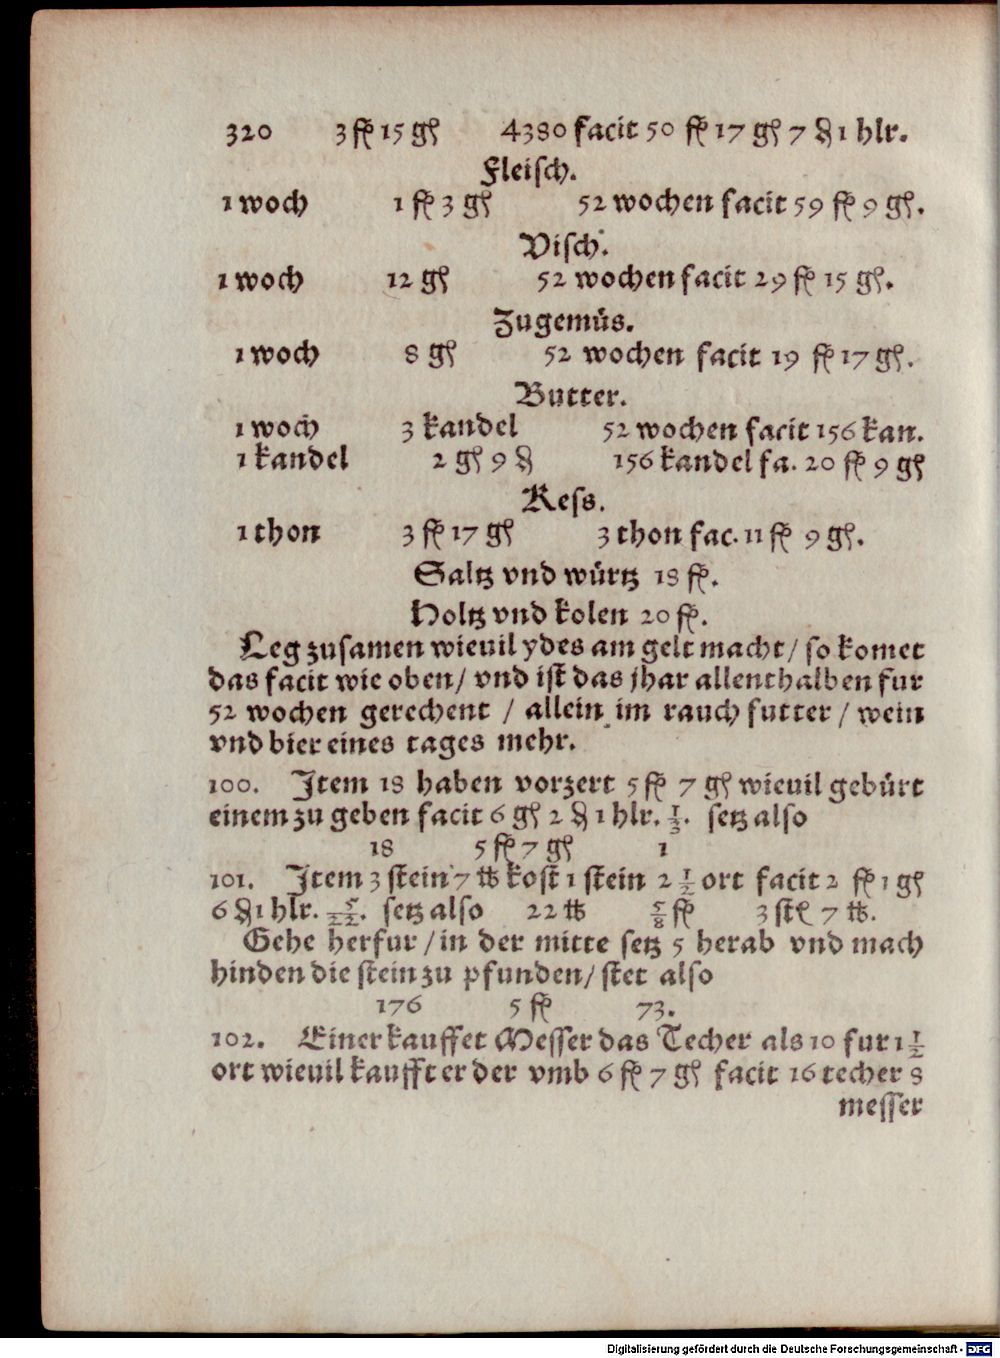 320 3 fl 15 gſ 4380 facit 50 fl 17 gſ 7 ₰ 1 hlr.
Fleiſch.
1 woch 1 fl 3 gſ 52 wochen facit 59 fl 9 gſ.
Viſch.
1 woch 12 gſ 52 wochen facit 29 fl 15 gſ.
Zugemüs.
1 woch 8 gſ 52 wochen facit 19 fl 17 gſ.
Butter.
1 woch 3 kandel 52 wochen facit 156 kan.
1 kandel 2 gſ 9 ₰ 156 kandel fa. 20 fl 9 gſ
Keſs.
1 thon 3 fl 17 gſ 3 thon fac. 11 fl 9 gſ.
Saltz vnd würtz 18 fl.
Holtz vnd kolen 20 fl.
Leg zuſamen wieuil ydes am gelt macht / ſo komet
das facit wie oben / vnd iſt das jhar allenthalben fur
52 wochen gerechent / allein im rauch futter / wein
vnd bier eines tages mehr.
100. Item 18 haben vorzert 5 fl 7 gſ wieuil gebürt
einem zu geben facit 6 gſ 2 ₰ 1 hlr. 1/3. ſetz alſo
18 5 fl 7 gſ 1
101. Item 3 ſtein 7 ℔ koſt 1 ſtein 2 1/2 ort facit 2 fl 1 gſ
6 ₰ 1 hlr. 5/22. ſetz alſo 22 ℔ 5/8 fl 3 ſtſ 7 ℔.
Gehe herfur / in der mitte ſetz 5 herab vnd mach
hinden die ſtein zu pfunden / ſtet alſo
176 5 fl 73.
102. Einer kauffet Meſſer das Techer als 10 fur 1 1/2
ort wieuil kaufft er der vmb 6 fl 7 gſ facit 16 techer 8
meſſer
Digitalisierung gefördert durch die Deutsche Forschungsgemeinschaft - DFG